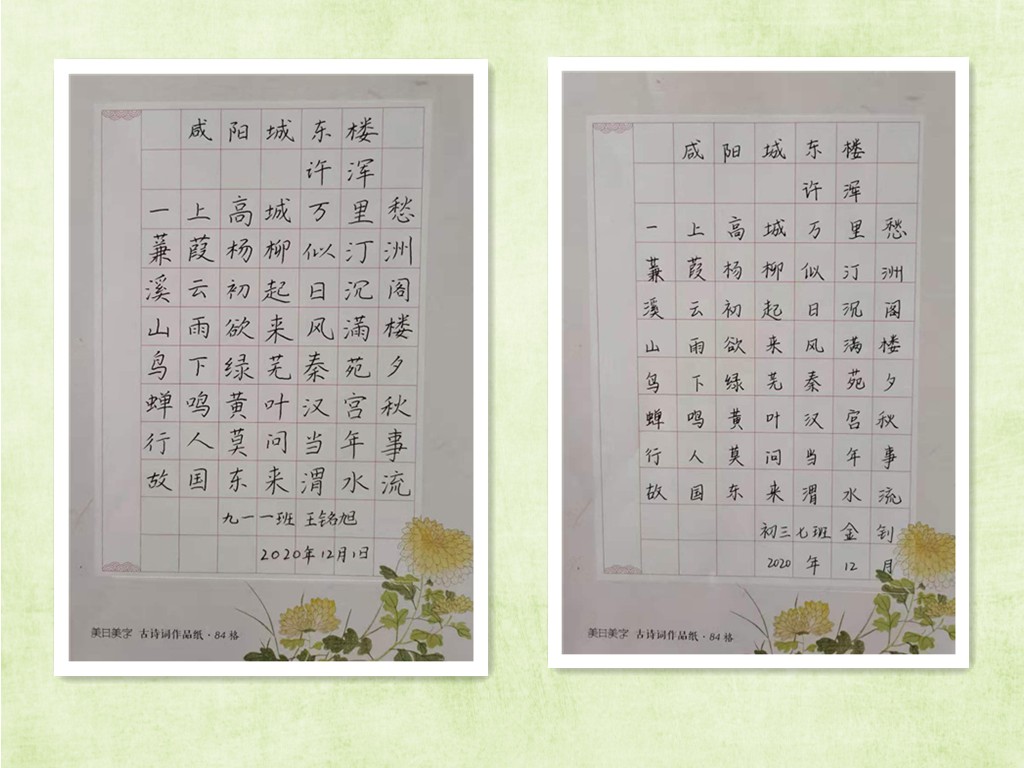 咸阳城东楼
许浑
一上高城万里愁
蒹葭杨柳似汀洲
溪云初起日沉阁
山雨欲来风满楼
鸟下绿芜秦苑夕
蝉鸣黄叶汉宫秋
行人莫问当年事
故国东来渭水流
九一一班 王铭旭
2020年12月1日
美日美字 古诗词作品纸·84格
咸阳城东楼
许浑
一上高城万里愁
蒹葭杨柳似汀洲
溪云初起日沉阁
山雨欲来风满楼
鸟下绿芜秦苑夕
蝉鸣黄叶汉宫秋
行人莫问当年事
故国东来渭水流
初三七班 金钊
2020年12月
美日美字 古诗词作品纸·84格